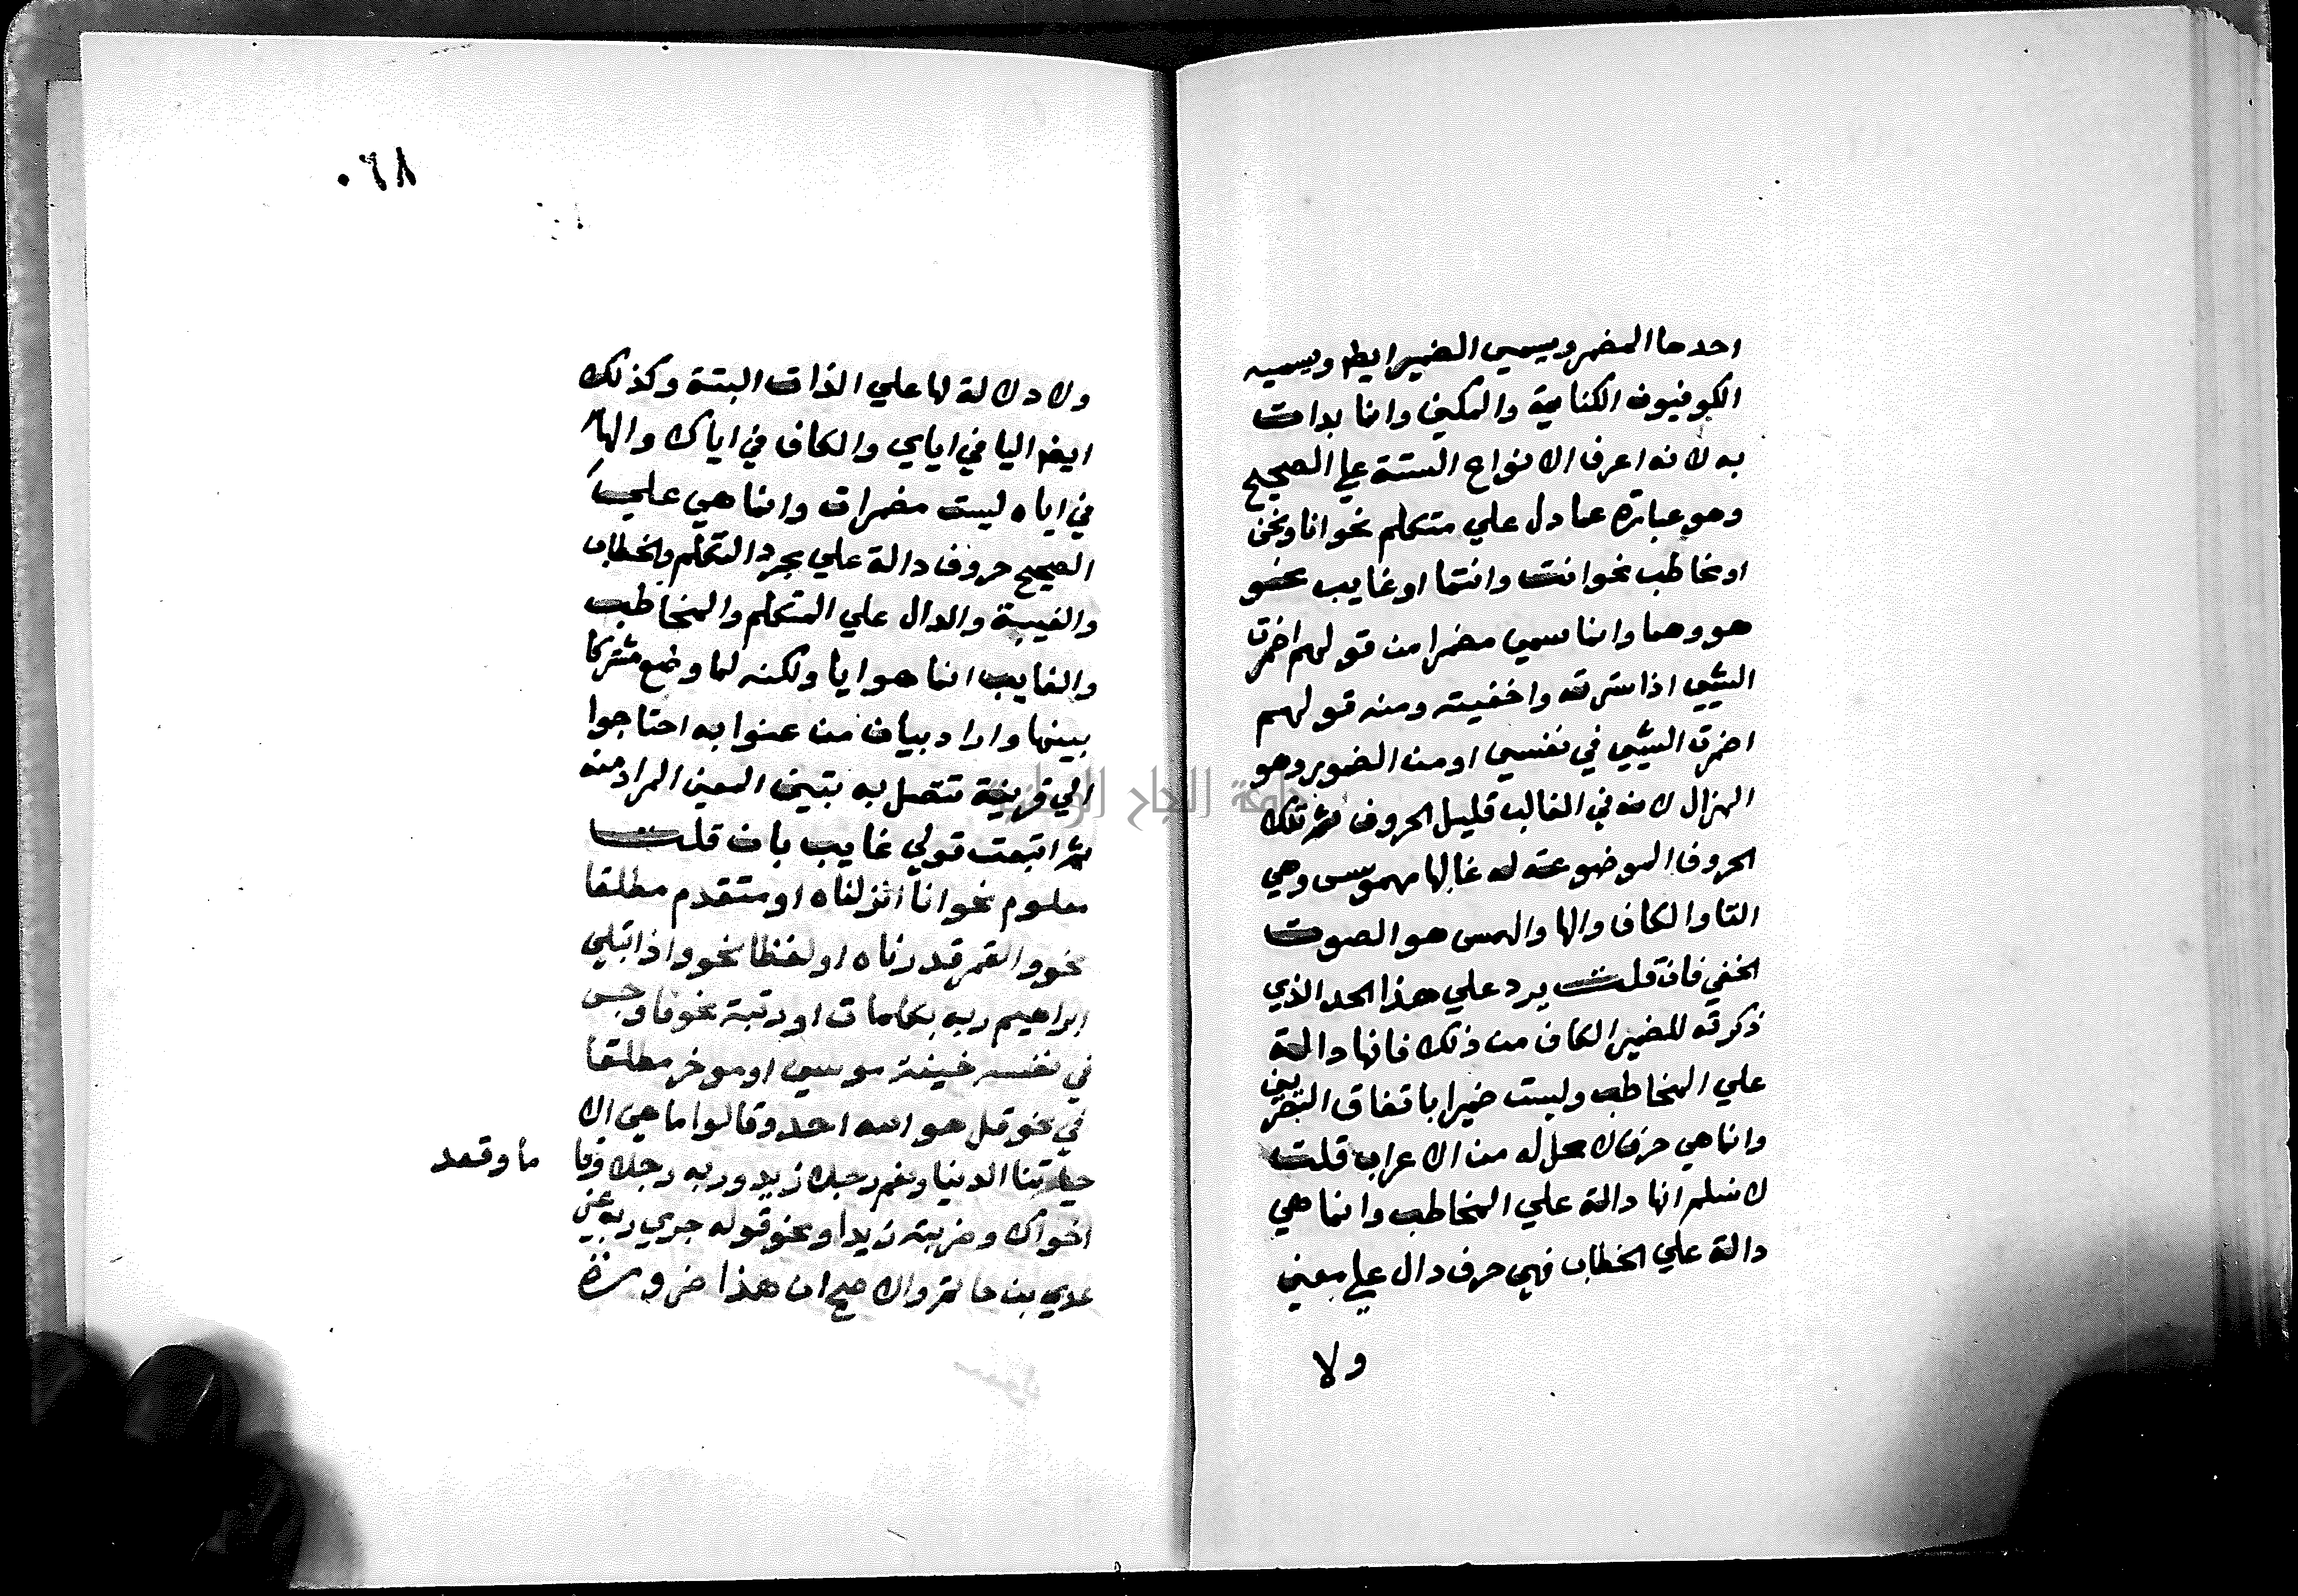 احدها المضمر ويسمي الضمير ايضا ويسميه
الكوفيون الكناية والمكني وانما بدات
به لانه اعرف الانواع الستة علي الصحيح
وهو عبارة عما دل علي متكلم نحو انا ونحن
او مخاطب نحو انت وانتما او غايب نحو
هو وهما وانما سمي مضمرا من قولهم اضمرت
الشيي اذا سترته واخفيته ومنه قولهم
اضمرت الشيي في نفسي او من الضمور وهو
الهزال لانه في الغالب قليل الحروف ثم تلك
الحروف الموضوعة له غالبا مهموسى وهي
التا والكاف والها والهمس هو الصوت
الخفي فان قلت يرد علي هذا الحد الذي
ذكرته للمضير الكاف من ذلك فانها دالة
علي المخاطب وليست ضميرا باتفاق البصريين
وانما هي حرف لا محل له من الاعراب قلت
لا نسلم انها دالة علي المخاطب وانما هي
دالة علي الخطاب فهي حرف دال علي معني
ولا
٠٦٨
ولا دلالة لها علي الذات البتة وكذلك
ايضا اليا في اياي والكاف في اياك والها
في اياه ليست مضمرات وانما هي علي
الصحيح حروف دالة علي مجرد التكلم والخطاب
والغيبة والدال علي المتكلم والمخاطب
والغايب انما هو ايا ولكنه لما وضع مشتركا
بينها وارادبيان من عنوا به احتاجوا
الي قرينة تتصل به تبين المعني المراد منه
ثم اتبعت قولي غايب بان قلت
معلوم نحو انا انزلناه او متقدم مطلقا
نحو والقمر قدرناه او لفظا نحو واذ ابتلي
ابراهيم ربه بكلمات او رتبة نحو فاوجس
في نفسه خيفة موسي او موخر مطلقا
في نحو قل هو الله احد وقالوا ما هي الا
حياتنا الدنيا ونعم رجلا زيد وربه رجلا وقا
ما وقعد
اخواك وضربته زيدا ونحو قوله جزي ربه عني
عدي بن حاتم والاصح ان هذا ضرورة
جامعة النجاح الوطنية